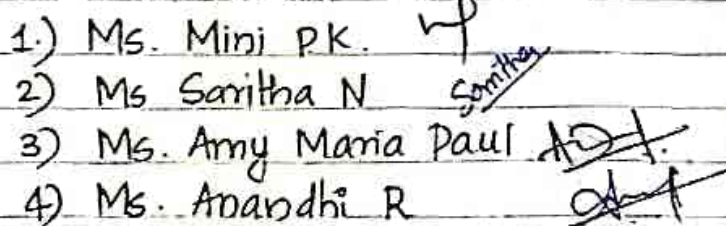 1.) Ms. Mini P.K.
2) Ms Saritha N Saritha
3) Ms. Amy Maria Paul
4) Ms. Anandhi R